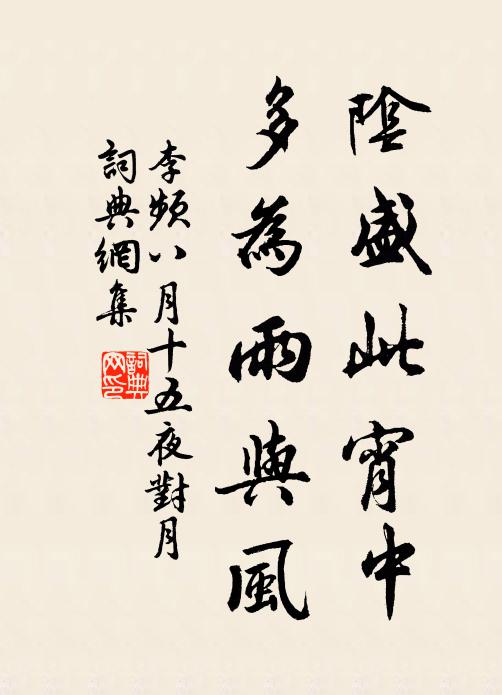 陰盛此宵中
多為雨與風
李頻八月十五夜對月
詞典網集
詞典网印